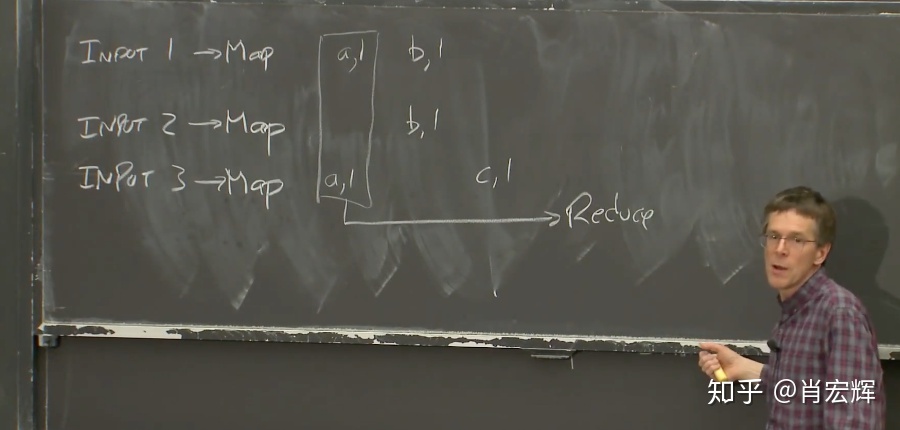 INPUT 1 → Map a,1 b,1
INPUT 2 → Map b,1
INPUT 3 → Map a,1 c,1
Reduce
知乎 @肖宏辉